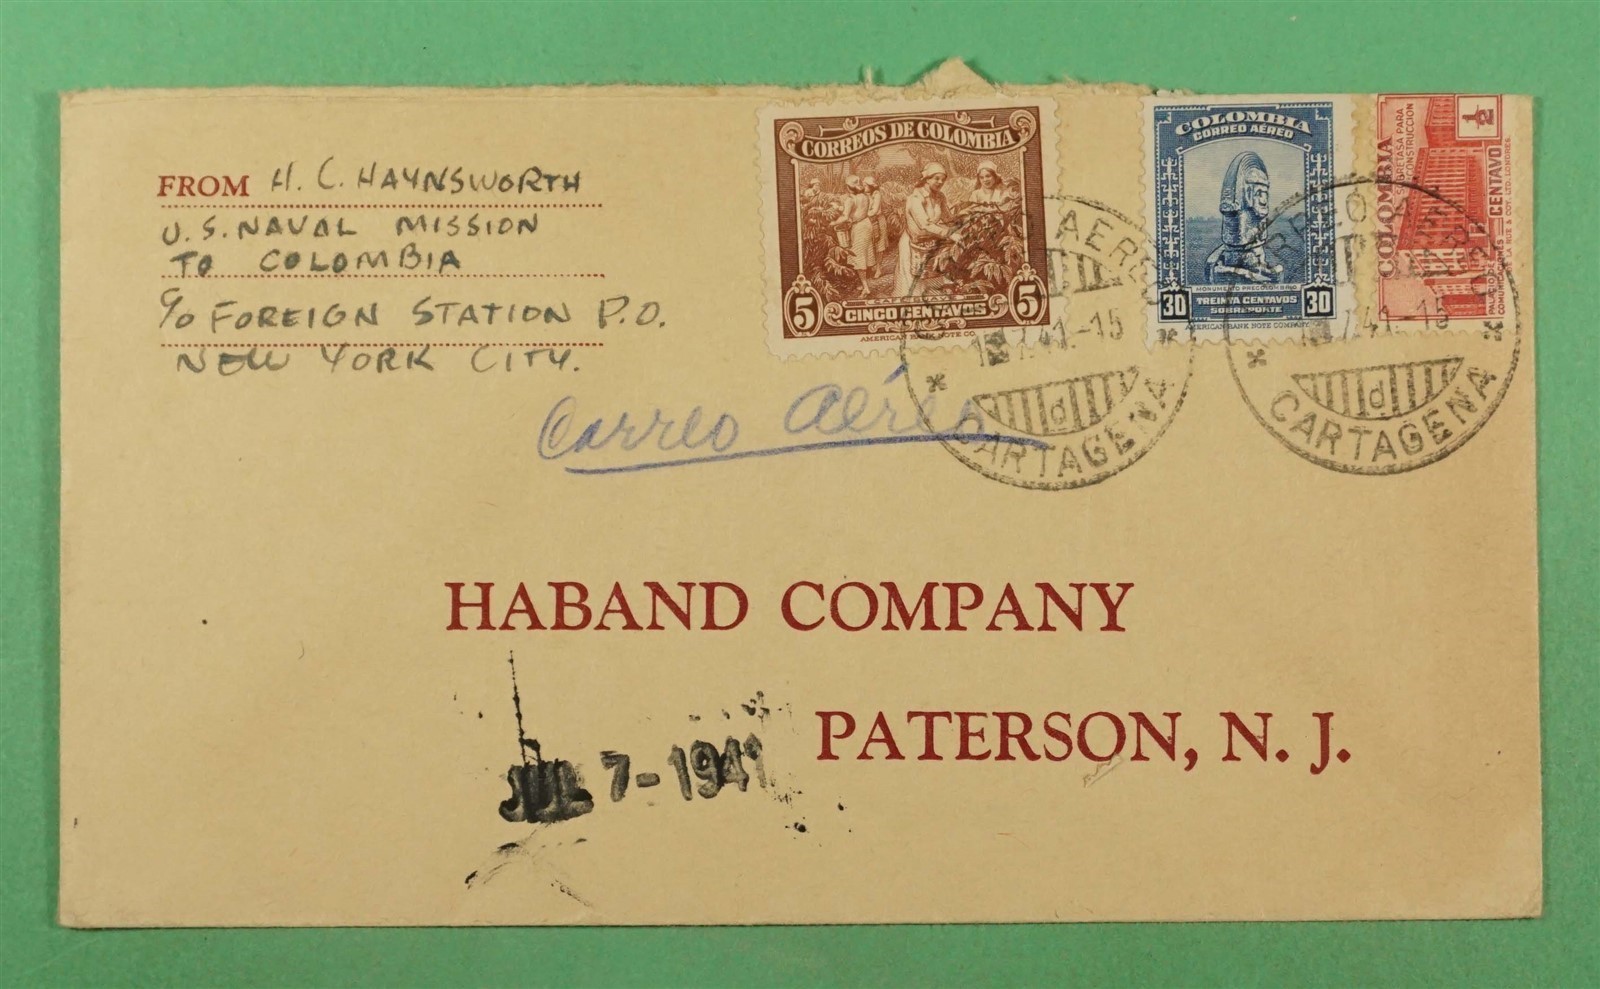 FROM H. C. HAYNSWORTH
U.S. NAVAL MISSION
TO COLOMBIA
c/o FOREIGN STATION P.O.
NEW YORK CITY.
CORREOS DE COLOMBIA
5 5
CINCO CENTAVOS
AMERICAN BANK NOTE CO.
COLOMBIA
CORREO AÉREO
MONUMENTO PRECOLOMBINO
30 TREINTA CENTAVOS 30
SOBREPORTE
AMERICAN BANK NOTE COMPANY
COLOMBIA
SOBRETASA PARA
CONSTRUCCION
1/2
CENTAVO
PALACIO DE
COMUNICACIONES
CORREO AEREO
7.41.-15
d
CARTAGENA
CORREO
7.41.-15
d
CARTAGENA
Correo aéreo
HABAND COMPANY
PATERSON, N. J.
JUL 7-1941